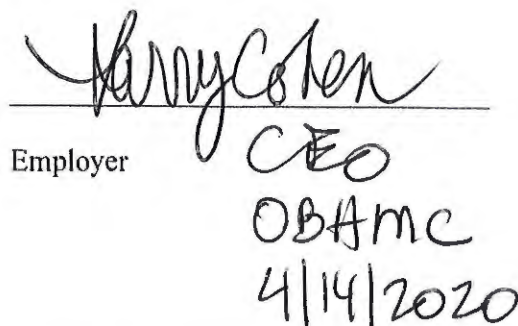 Larry Cohen
Employer CEO
OBAMC
4/14/2020